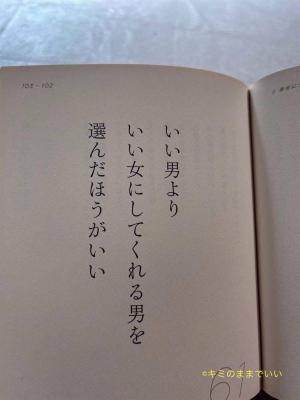 103-102
いい男より
いい女にしてくれる男を
選んだほうがいい
61
©キミのままでいい